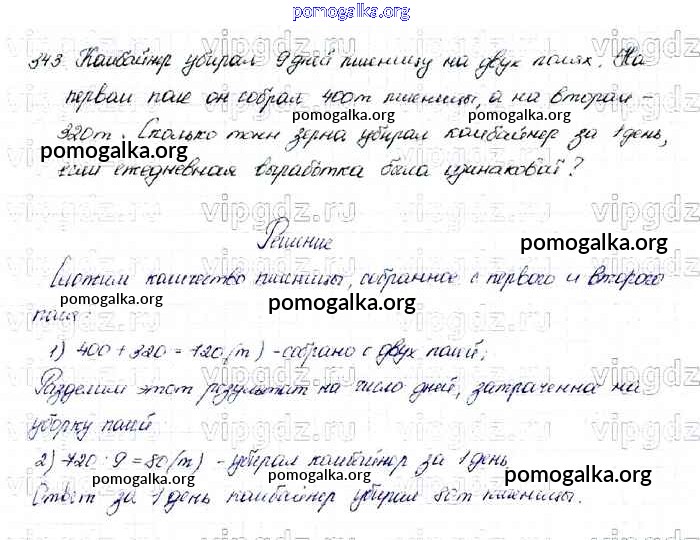 pomogalka.org
343. Комбайнер убирал 9 дней пшеницу на двух полях. На
первом поле он собрал 400т пшеницы, а на втором -
pomogalka.org pomogalka.org
320т. Сколько тонн зерна убирал комбайнер за 1 день,
pomogalka.org
если ежедневная выработка была одинаковой?
vipgdz.ru vipgdz.ru vipgdz.ru
Решение
pomogalka.org
Сложим количество пшеницы, собранное с первого и второго
pomogalka.org pomogalka.org
поля:
vipgdz.ru vipgdz.ru vipgdz.ru
1) 400 + 320 = 720 (т) - собрано с двух полей;
pomogalka.org pomogalka.org
Разделим этот результат на число дней, затраченное на
уборку полей
vipgdz.ru vipgdz.ru vipgdz.ru
2) 720 : 9 = 80 (т) - убирал комбайнер за 1 день
pomogalka.org pomogalka.org
Ответ за 1 день комбайнер убирал 80т пшеницы.